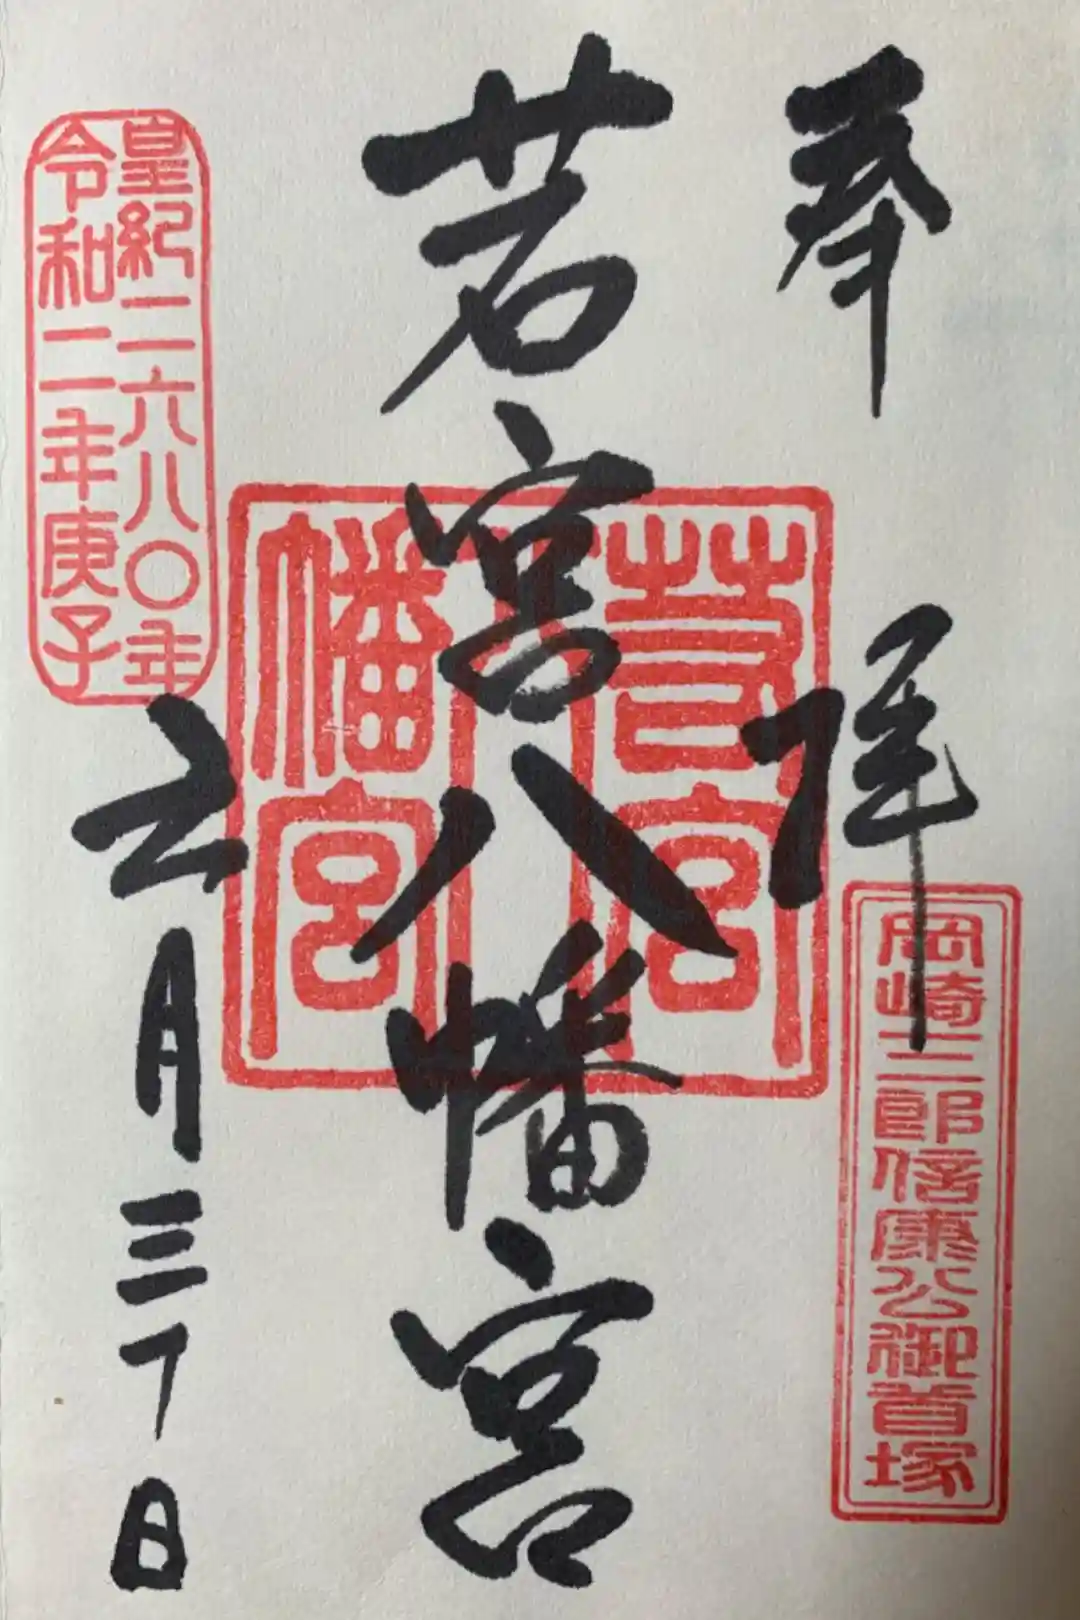 奉拝
岡崎三郎信康公御首塚
若宮八幡宮
若宮
八
幡宮
皇紀二六八〇年
令和二年庚子
六月三十日